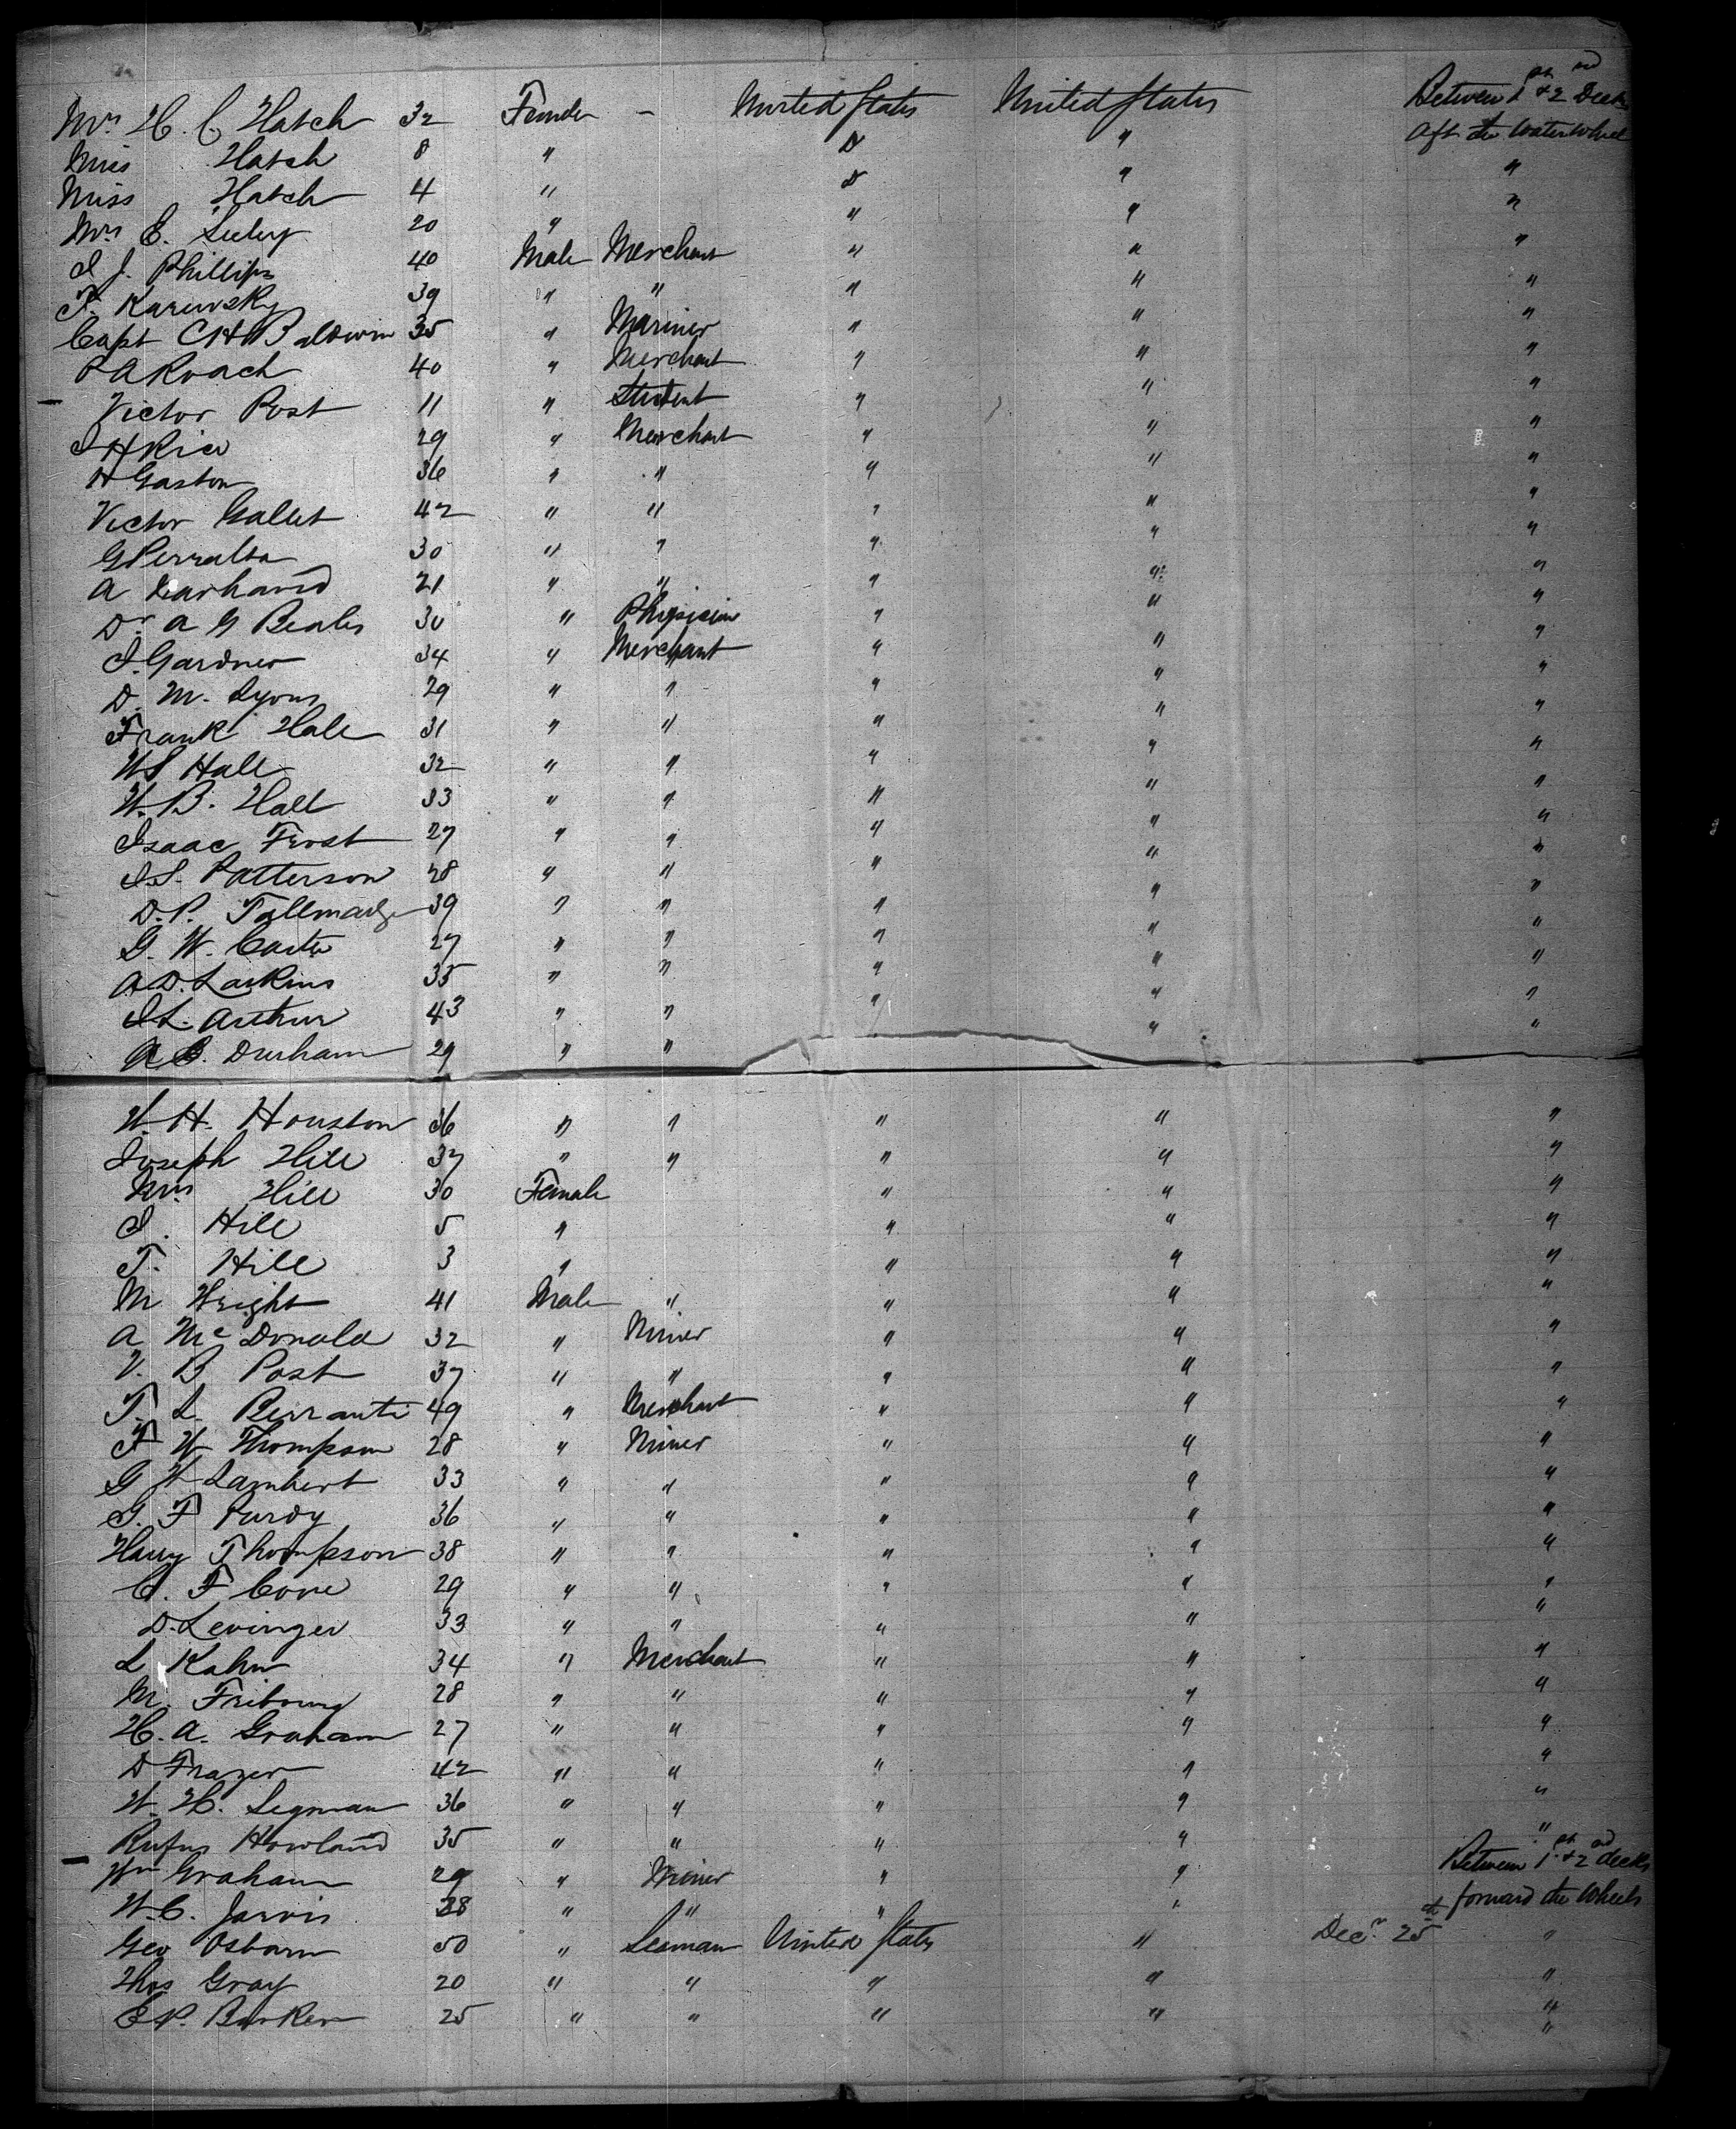 Mrs H. C. Hatch 32 Female – United States United States Between 1st & 2nd Decks
Aft the Water Wheel
Miss Hatch 8 " D " "
Miss Hatch 4 " D " "
Mrs E. Seeley 20 " " " "
I J. Phillips 40 Male Merchant " " "
F. 39 " " " " "
Capt C H Baldwin 35 " Mariner " " "
P A Roach 40 " Merchant " " "
Victor Post 11 " Student " " "
I H Rice 29 " Merchant " " "
H Gaston 36 " " " " "
Victor Gallet 42 " " " " "
G Perralta 30 " " " " "
A 21 " " " " "
Dr A G Beales 30 " Physician " " "
I. Gardner 34 " Merchant " " "
D. M. Lyons 29 " " " " "
Frank Hale 31 " " " " "
W S Hall 32 " " " " "
W. B. Hall 33 " " " " "
Isaac Frost 27 " " " " "
I. S. Patterson 28 " " " " "
D. P. Tallmadge 39 " " " " "
G. W. Carter 27 " " " " "
A D. Larkins 35 " " " " "
I L. Arthur 43 " " " " "
A B. Durham 29 " " " "
W. H. Houston 36 " " " " "
Joseph Hill 37 " " " " "
Mrs Hill 30 Female " " "
I. Hill 5 " " " "
T. Hill 3 " " " "
M Wright 41 Male " " " "
A McDonald 32 " Miner " " "
V. B Post 37 " " " " "
T. L. 49 " Merchant " " "
F W Thompson 28 " Miner " " "
G W Lambert 33 " " " " "
G. F Purdy 36 " " " " "
Harry Thompson 38 " " " " "
C. F Cone 29 " " " " "
D. Levinger 33 " " " " "
L Kahn 34 " Merchant " " "
M. Fribourg 28 " " " " "
H. A. Graham 27 " " " " "
D Frazer 42 " " " " "
W. H. Segman 36 " " " " "
Rufus Howland 35 " " " " "
Wm Graham 29 " Miner " " Between 1st & 2nd decks
W. C. Jarvis 38 " " " " forward the Wheels
Geo Osborn 50 " Seaman United States " Decr 25th "
Thos Gray 20 " " " " "
E P. Barker 25 " " " " "
"